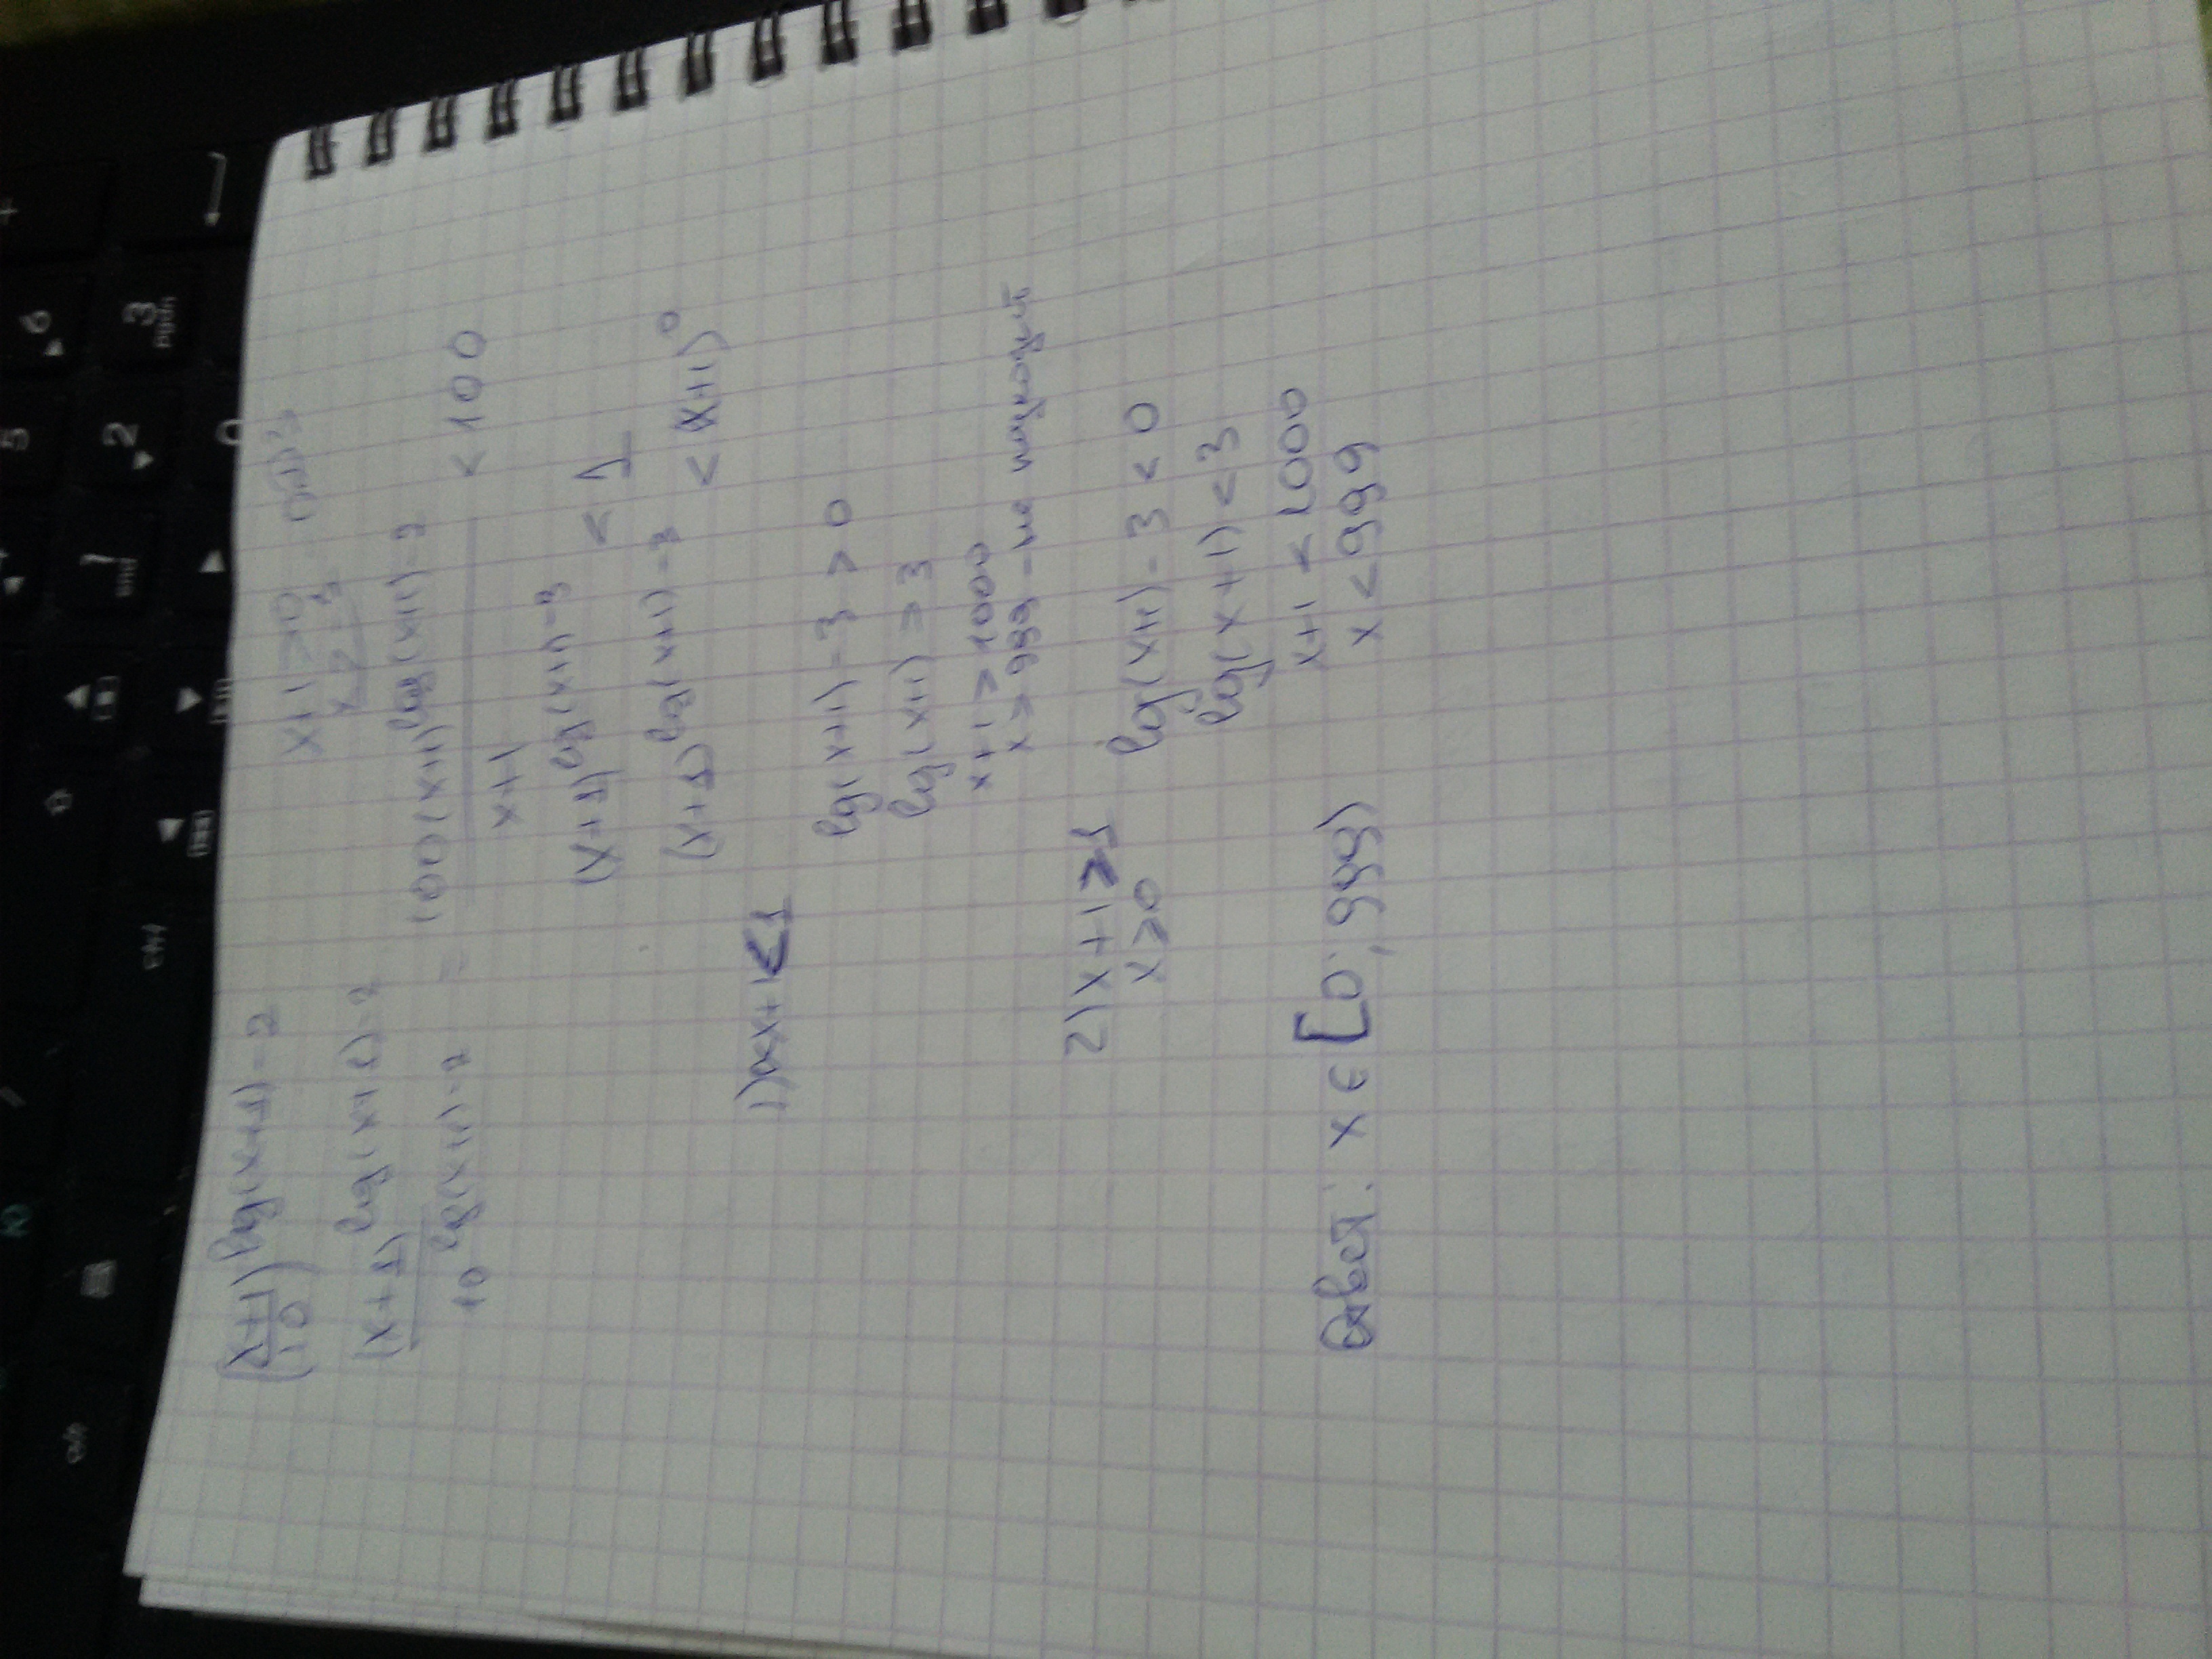 ((x+1)/10)^lg(x+1)-2
x+1>0
(x+1)^lg(x+1)-2 / 10^lg(x+1)-2 = 100(x+1)^lg(x+1)-2 / x+1 < 100
(x+1)^lg(x+1)-3 < 1
(x+1)^lg(x+1)-3 < (x+1)^0
1) 0<x+1<1
lg(x+1)-3>0
lg(x+1)>3
x+1>1000
x>999 - не подходит
2) x+1≥1
x≥0
lg(x+1)-3<0
lg(x+1)<3
x+1<1000
x<999
Ответ: x∈[0; 999)